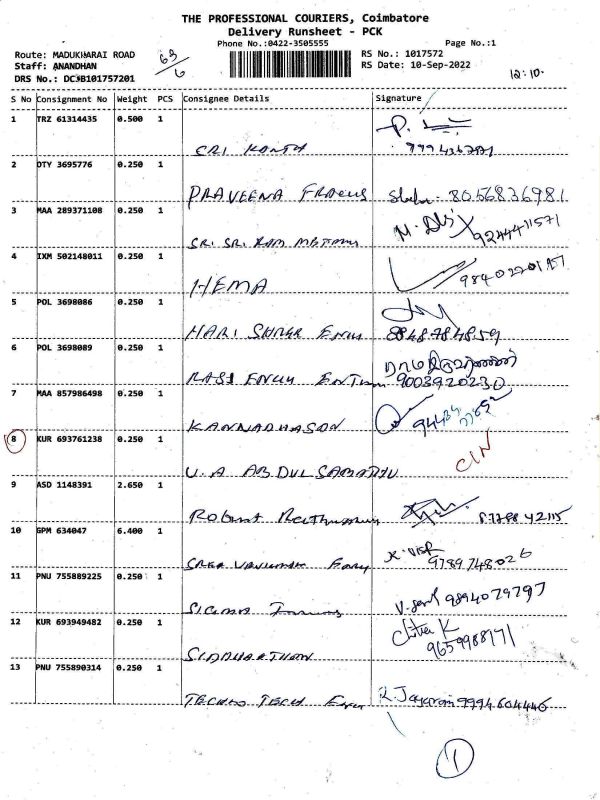 THE PROFESSIONAL COURIERS, Coimbatore
Delivery Runsheet - PCK
Phone No.:0422-3505555 Page No.:1
Route: MADUKHARAI ROAD 63/6 RS No.: 1017572
Staff: ANANDHAN RS Date: 10-Sep-2022
DRS No.: DCJB101757201 12:10.
S No Consignment No Weight PCS Consignee Details Signature
1 TRZ 61314435 0.500 1
SRI KANTH
2 DTY 3695776 0.250 1
PRAVEENA 8056836981
3 MAA 289371108 0.250 1
SRI SRI RAM 9244411571
4 IXM 502148011 0.250 1
HEMA
5 POL 3698086 0.250 1
HARI 8848784859
6 POL 3698089 0.250 1
RASI 9003920230
7 MAA 857986498 0.250 1
KANNADHASON
8 KUR 693761238 0.250 1
CIN
U.A ABDUL
9 ASD 1148391 2.650 1
Robert
10 GPM 634047 6.400 1
9789748026
11 PNU 755889225 0.250 1
SIGMA 9894079797
12 KUR 693949482 0.250 1
Chitra K
9659988171
SIDDHARTHAN
13 PNU 755890314 0.250 1
TECHNO TECH R. Jayaram 9994604446
1